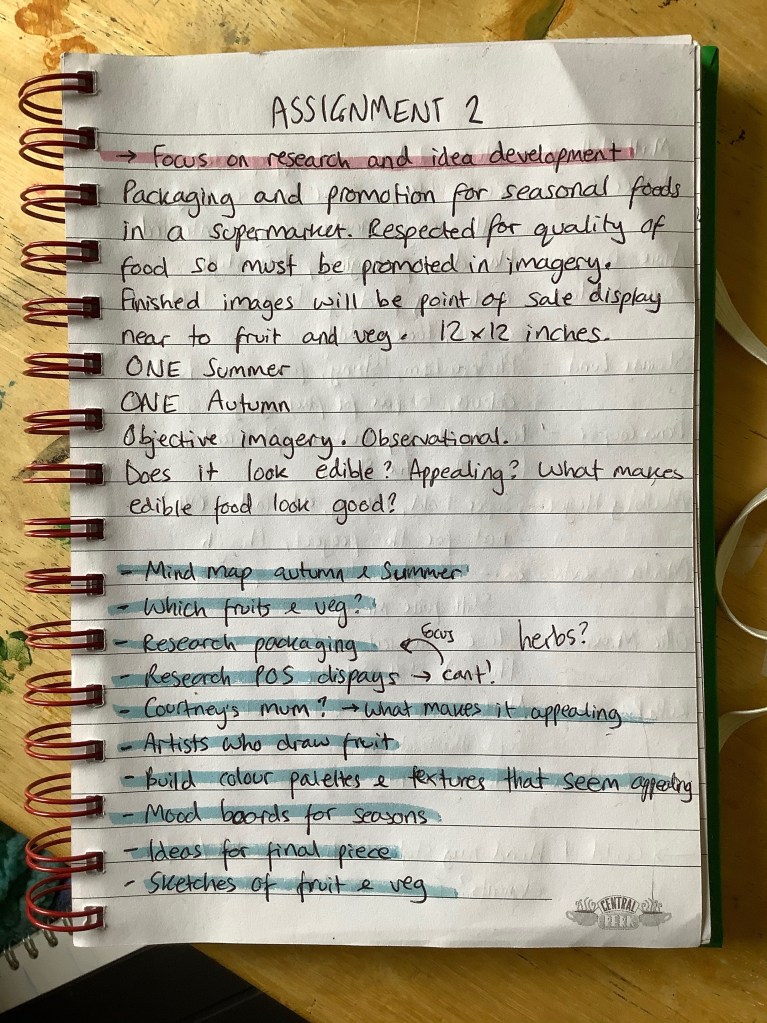 ASSIGNMENT 2
→ Focus on research and idea development
Packaging and promotion for seasonal foods
in a supermarket. Respected for quality of
food so must be promoted in imagery.
Finished images will be point of sale display
near to fruit and veg. 12x12 inches.
ONE Summer
ONE Autumn
Objective imagery. Observational.
Does it look edible? Appealing? What makes
edible food look good?
- Mind map autumn & Summer
- Which fruits & veg?
- Research packaging focus herbs?
- Research POS dispays → cant!
- Courtney's mum? → what makes it appealing
- Artists who draw fruit
- Build colour palettes & textures that seem appealing
- Mood boards for seasons
- Ideas for final piece
- Sketches of fruit & veg
CENTRAL
PERK